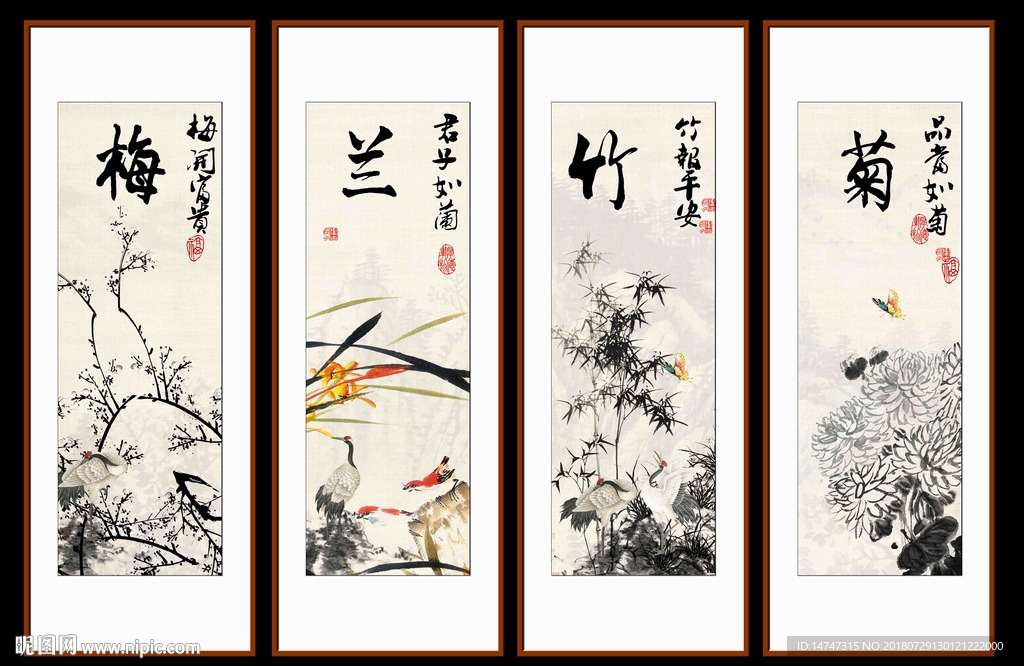 梅
梅開富貴
福
兰
君子如蘭
竹
竹報平安
菊
品當如菊
福
昵图网 www.nipic.com
ID:14747315 NO:20180729130121222000